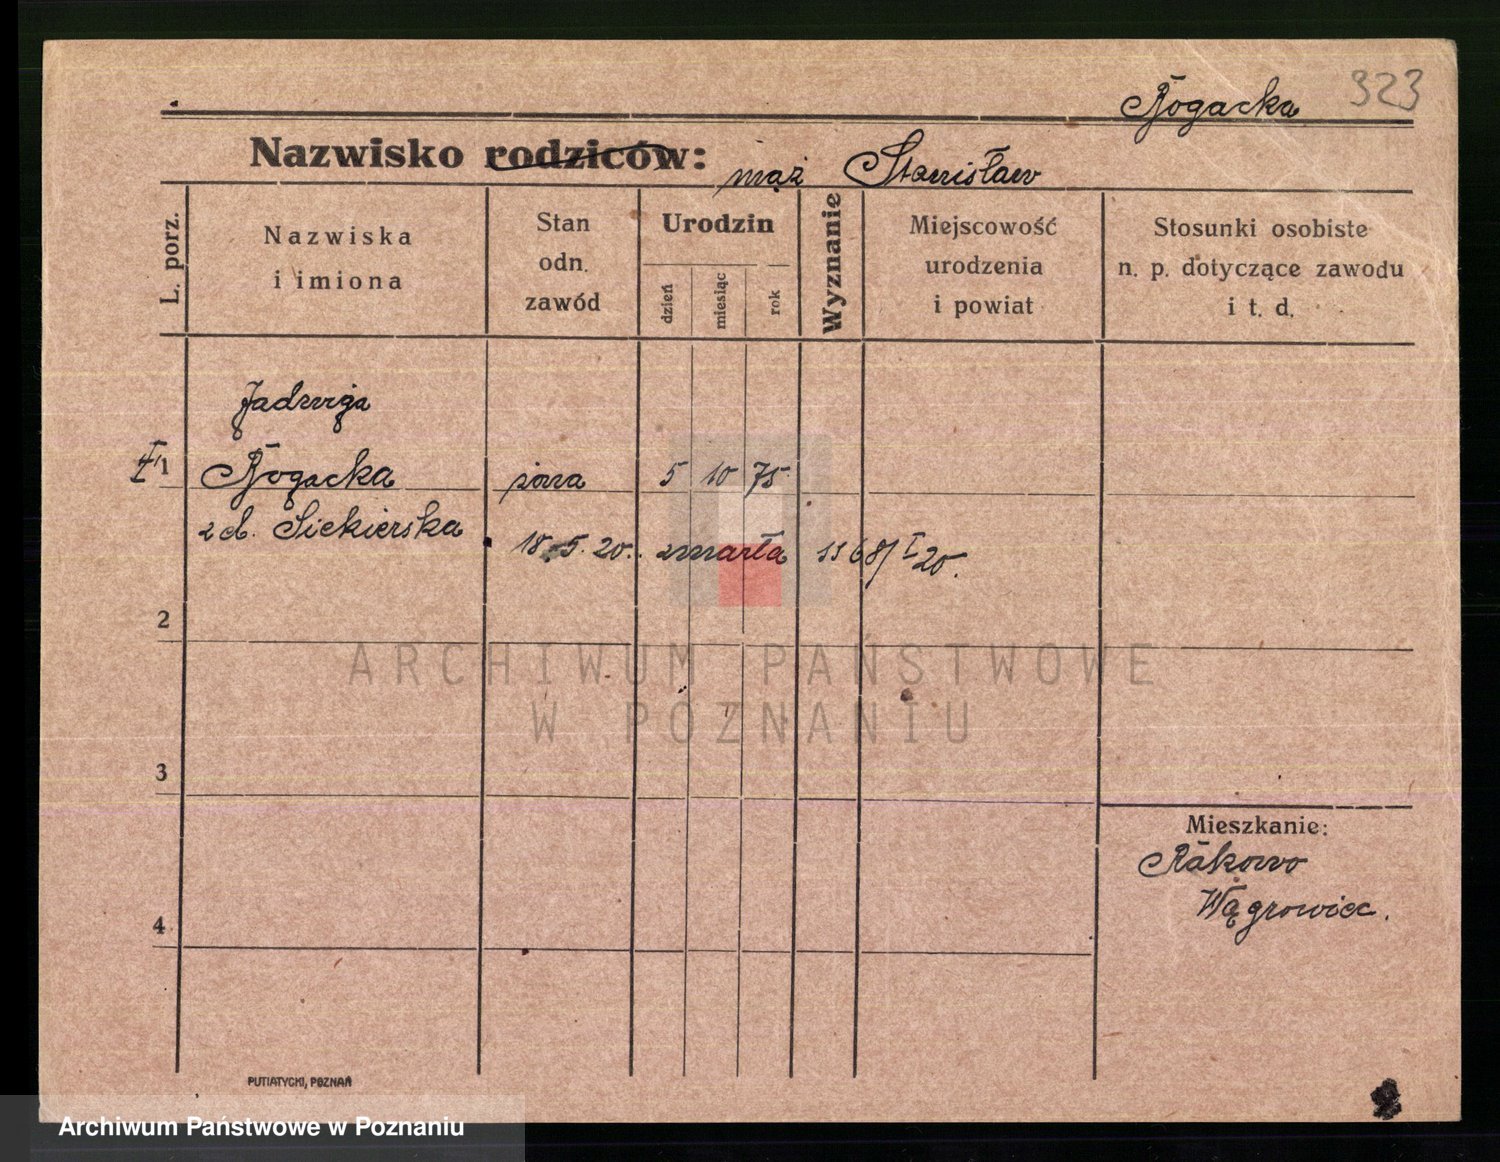 Rogacka 323
Nazwisko rodziców: mąż Stanisław
L. porz.
Nazwiska
i imiona
Stan
odn.
zawód
Urodzin
dzień
miesiąc
rok
Wyznanie
Miejscowość
urodzenia
i powiat
Stosunki osobiste
n. p. dotyczące zawodu
i t. d.
Jadwiga
1 Rogacka żona 5 10 75.
z d. Siekierska
18. 5. 20. zmarła 1168/I 20.
2
ARCHIWUM PAŃSTWOWE
W POZNANIU
3
Mieszkanie:
Rąkowo
Wągrowiec.
4
PUTIATYCKI, POZNAŃ
Archiwum Państwowe w Poznaniu